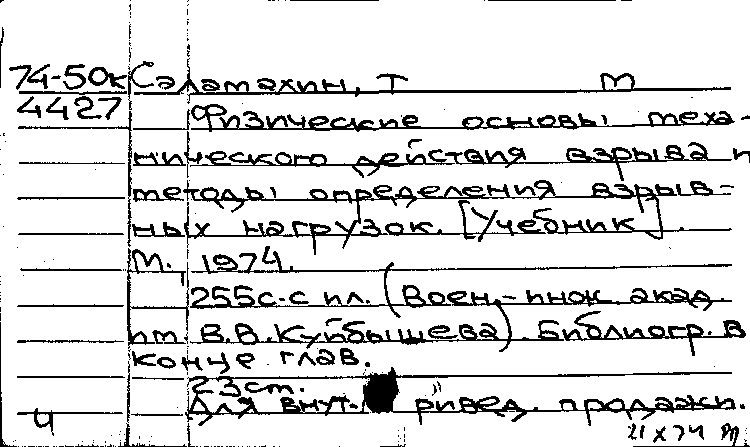 74-50к Саламахин, Т м
4427 Физические основы меха-
нического действия взрыва и
методы определения взрыв-
ных нагрузок. [Учебник].
М., 1974.
255с. с ил. (Воен.-инж. акад.
им. В.В. Куйбышева). Библиогр. в
конце глав.
23см.
Для внут- ривед. продажи.
ч
21 X 74